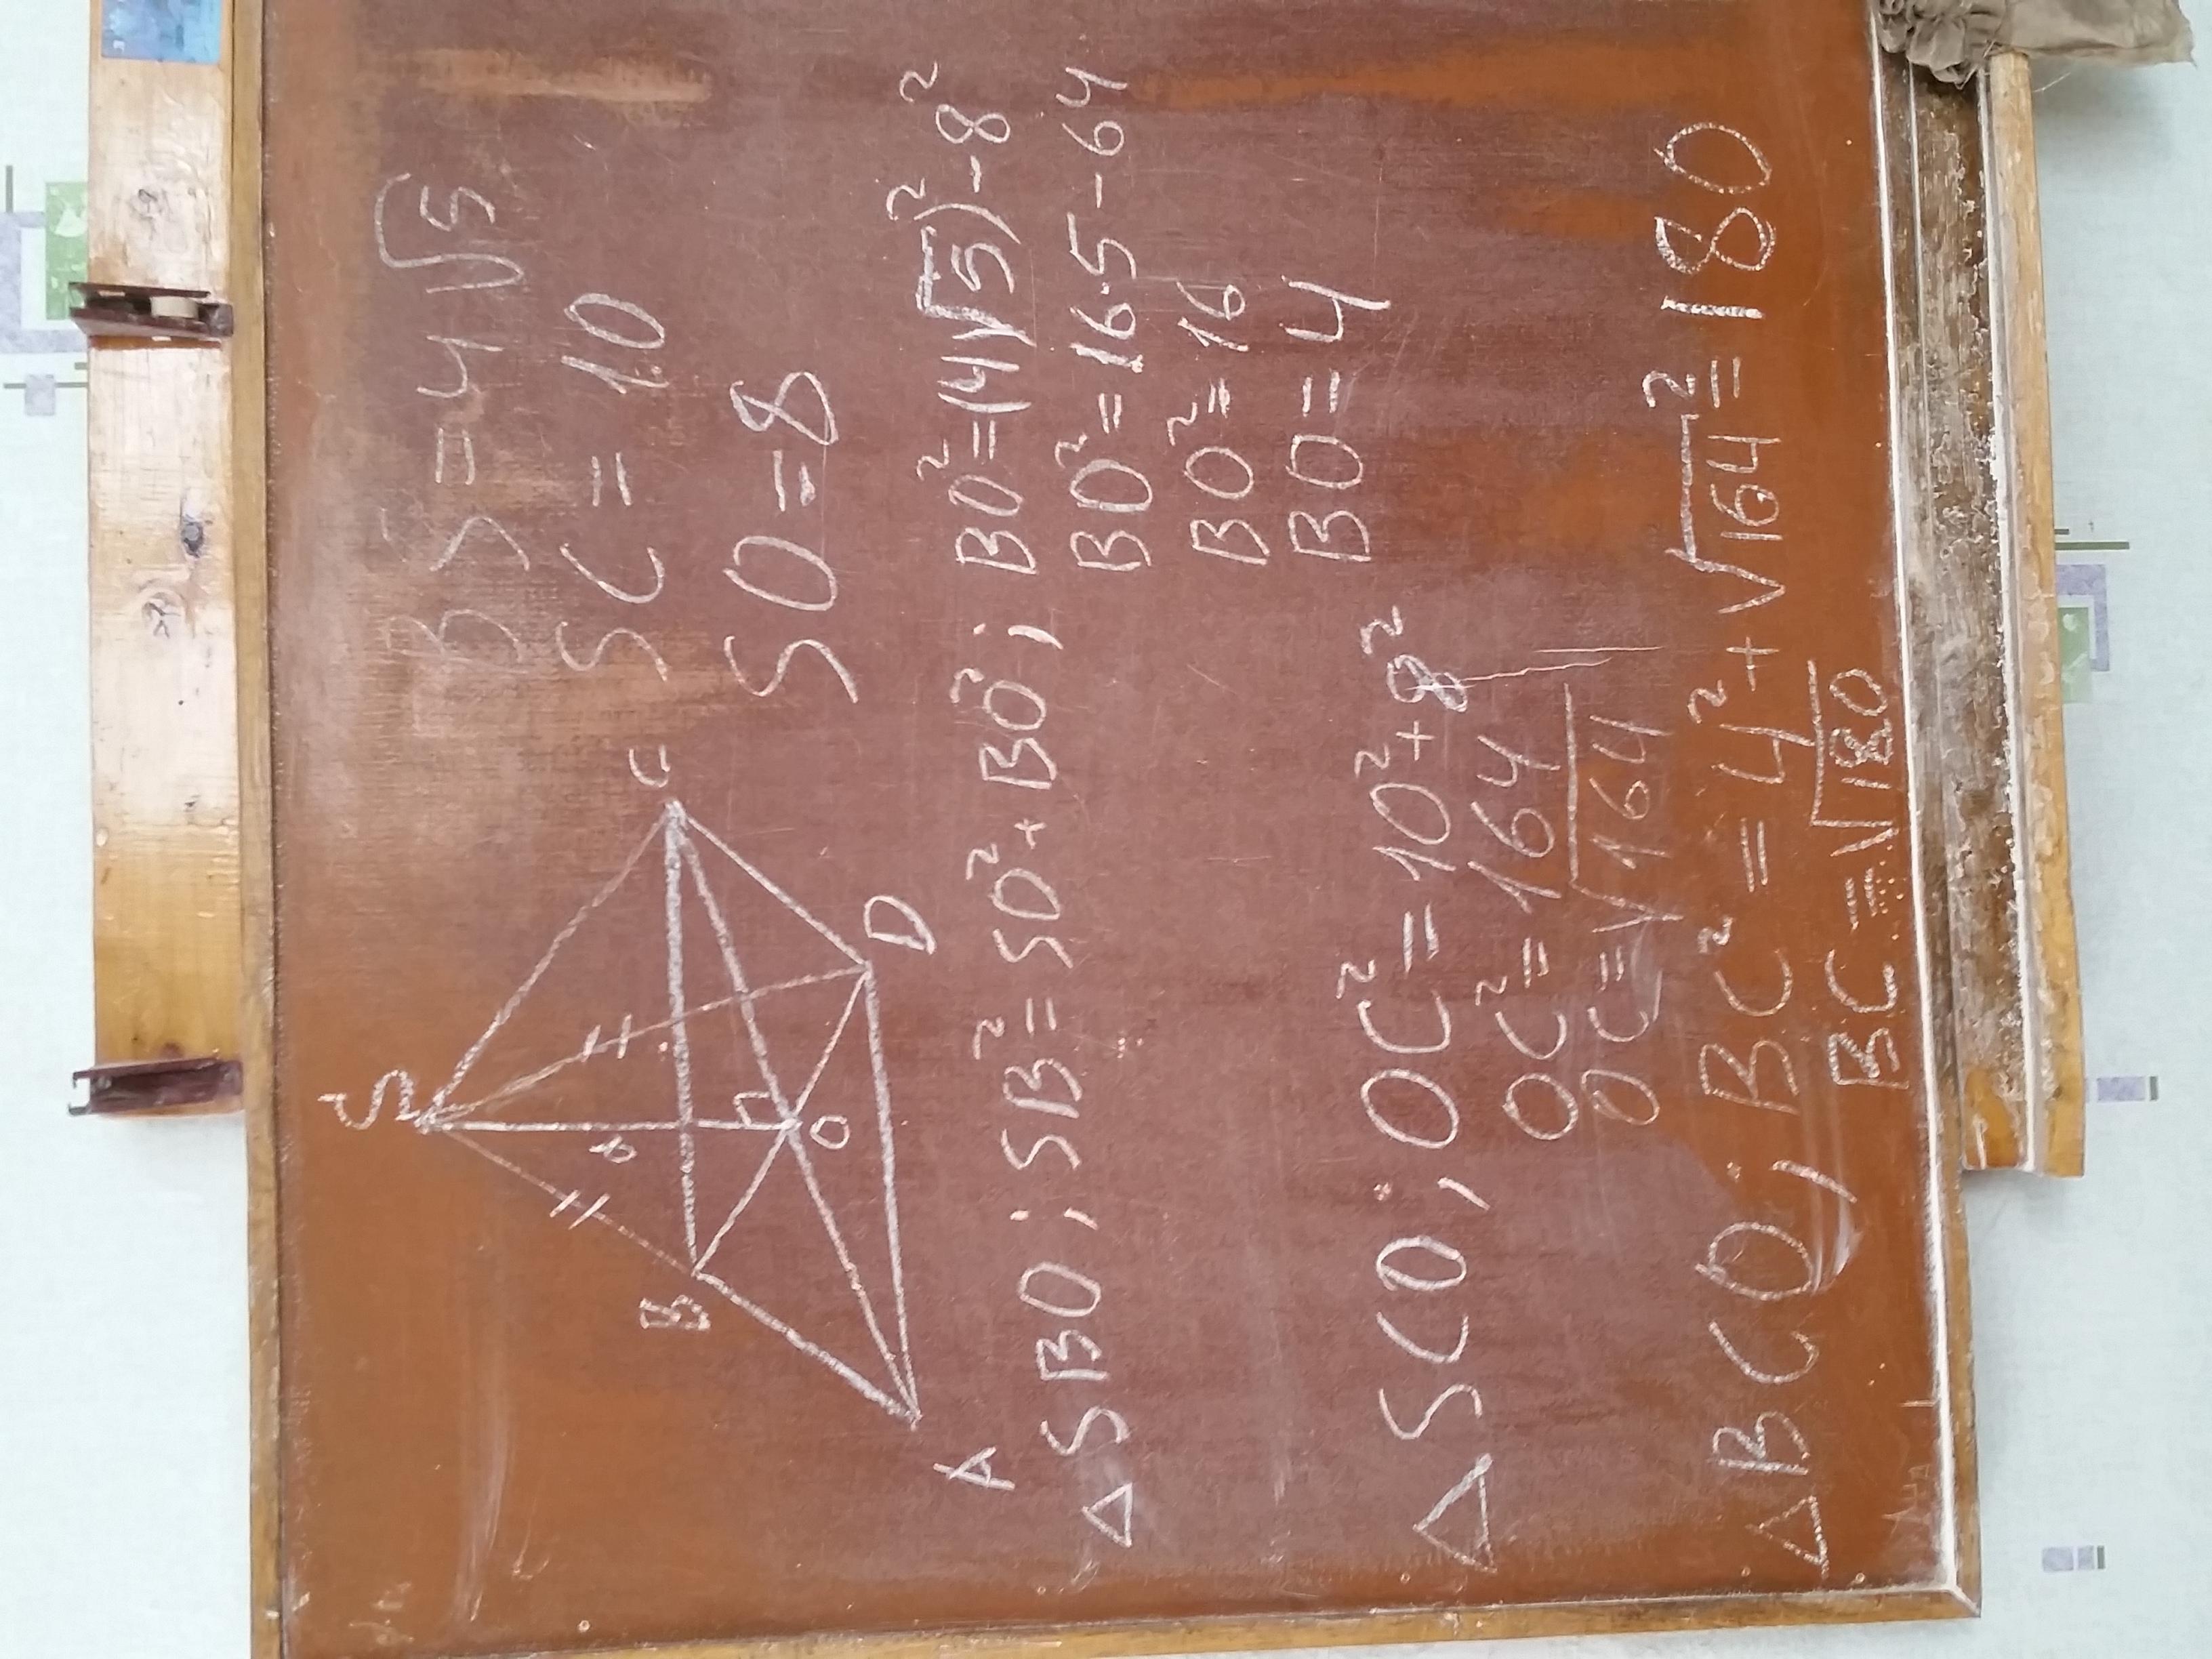 S
B
C
8
A
O
D
BS = 4√5
SC = 10
SO = 8
△SBO; SB² = SO² + BO²; BO² = (4√5)² - 8²
BO² = 16·5 - 64
BO² = 16
BO = 4
△SCO; OC² = 10² + 8²
OC² = 164
OC = √164
△BCO; BC² = 4² + √164² = 180
BC = √180